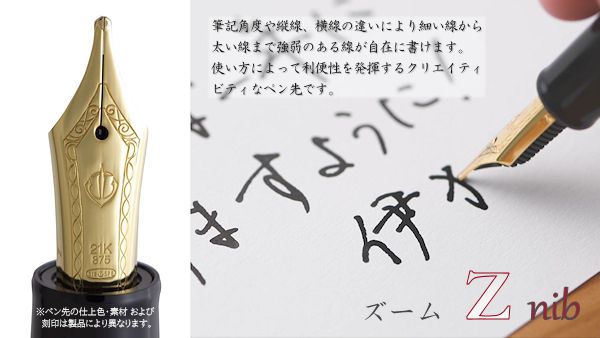 筆記角度や縦線、横線の違いにより細い線から
太い線まで強弱のある線が自在に書けます。
使い方によって利便性を発揮するクリエイティ
ビティなペン先です。
21K
875
ほすように
伊
ズーム Z nib
※ペン先の仕上色・素材 および
刻印は製品により異なります。